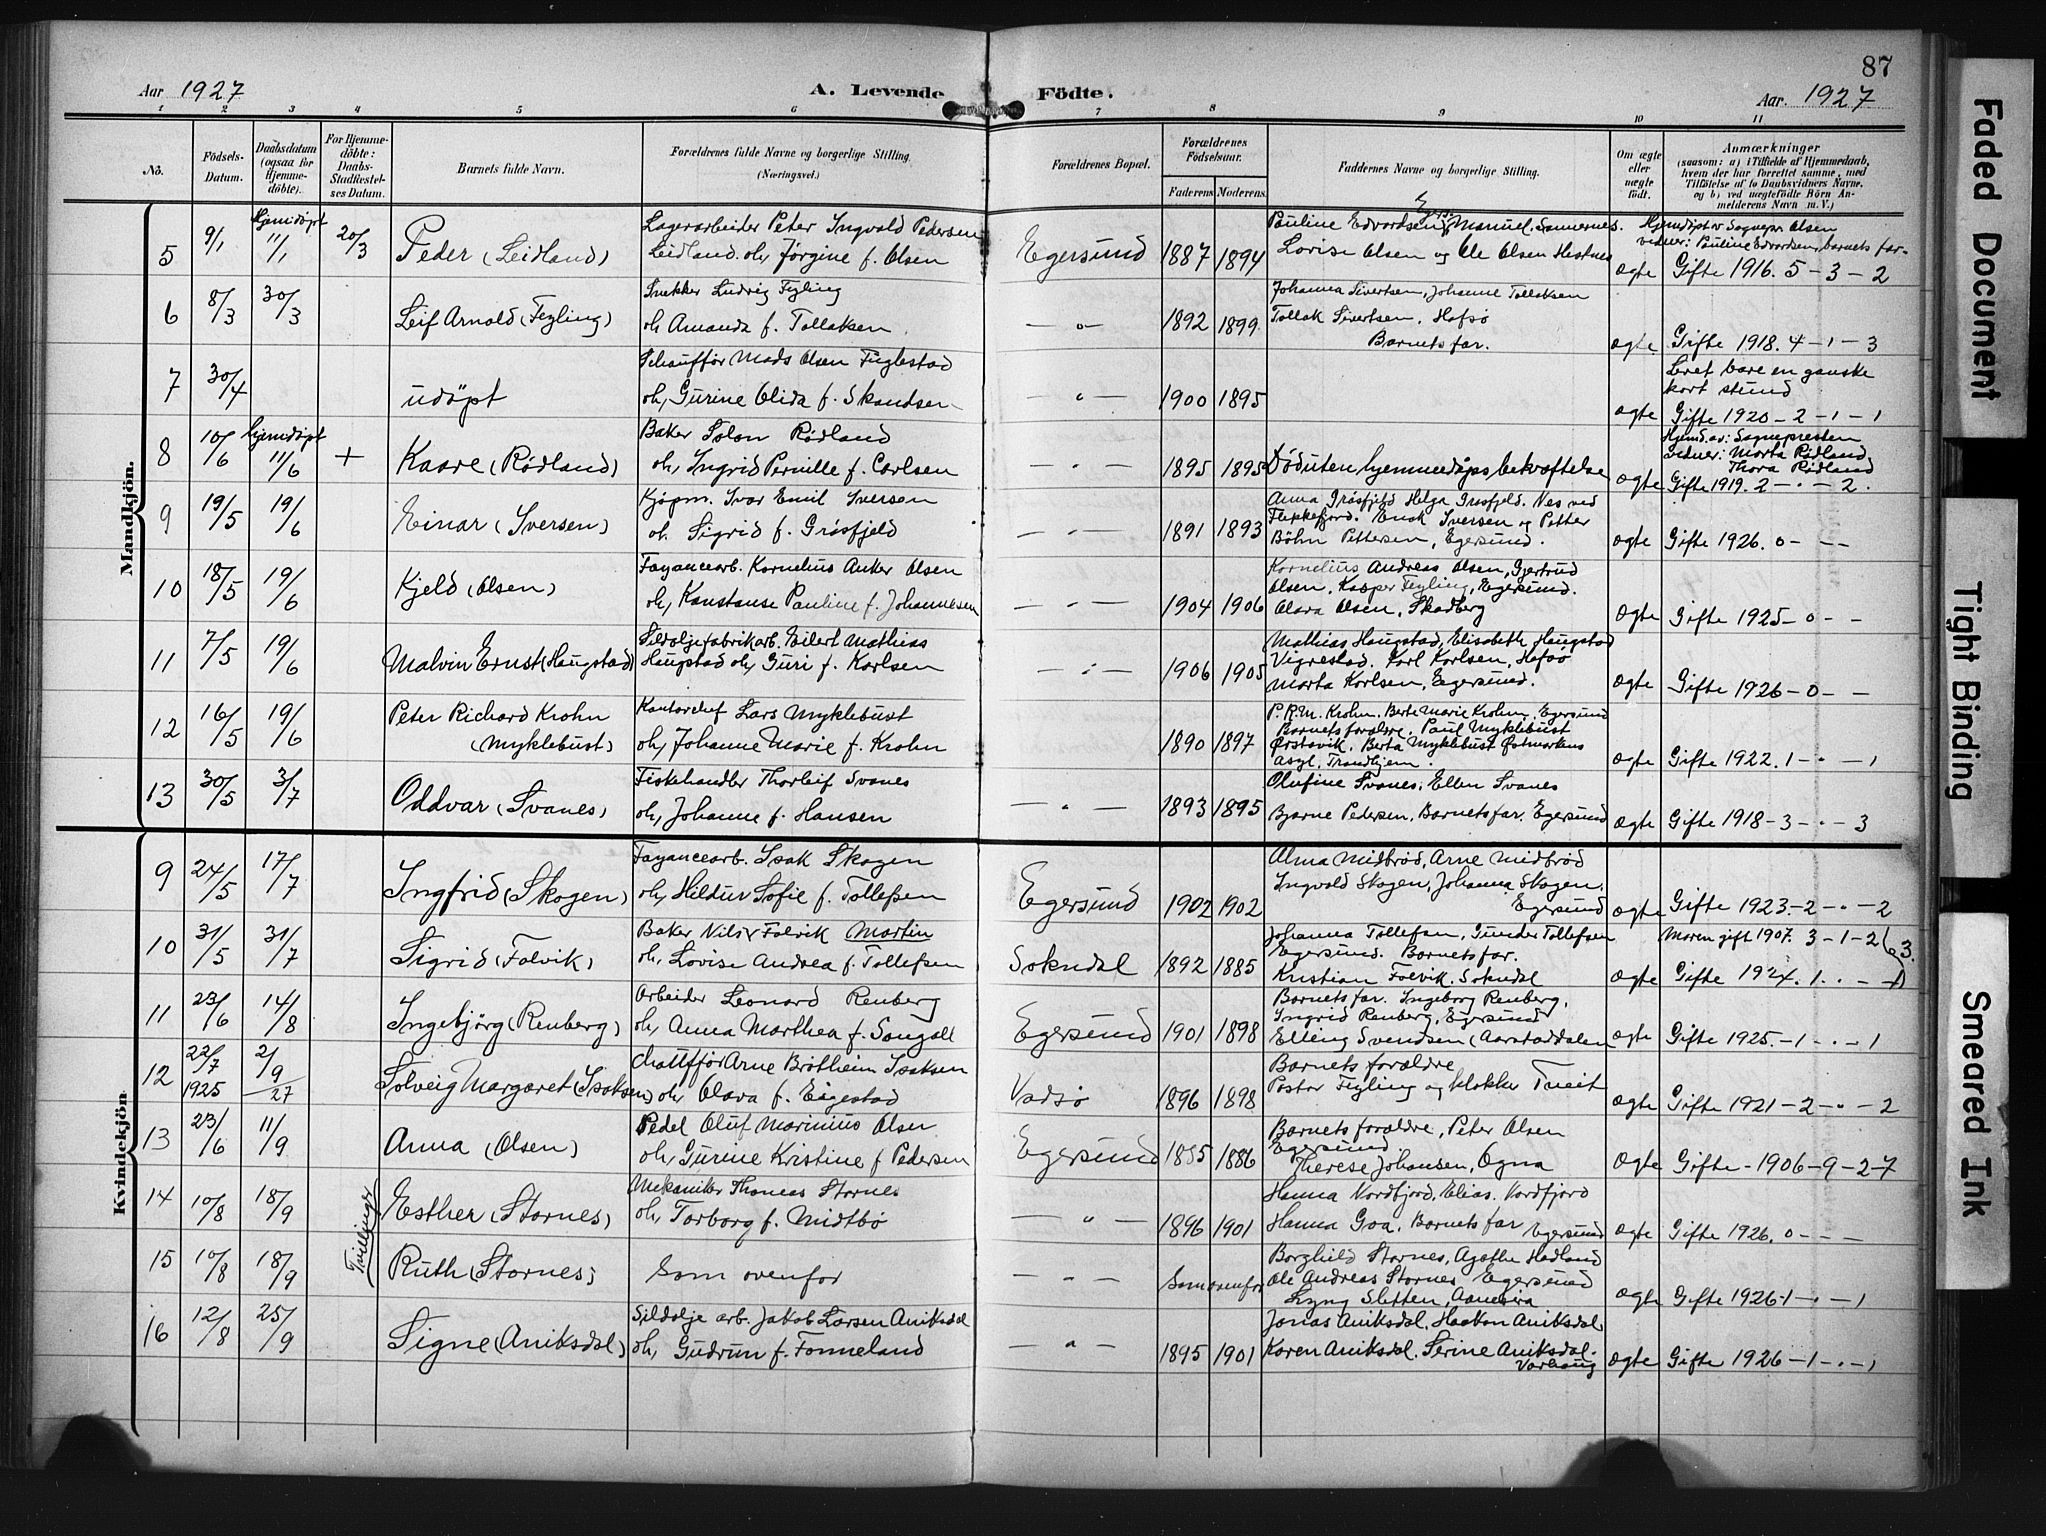 87
Aar 1927
A. Levende
Födte.
Aar. 1927
1 2 3 4 5 6 7 8 9 10 11
No.
Födsels-
Datum.
Daabsdatum
(ogsaa for
Hjemme-
döbte).
For Hjemme-
döbte:
Daabs-
Stadfæstel-
ses Datum.
Barnets fulde Navn.
Forældrenes fulde Navne og borgerlige Stilling.
(Næringsvei.)
Forældrenes Bopæl.
Forældrenes
Födselsaar.
Faderens. Moderens.
Faddernes Navne og borgerlige Stilling.
Om ægte
eller
uægte
födt.
Anmærkninger
(saasom: a) i Tilfælde af Hjemmedaab,
hvem der har forrettet samme, med
Tilföielse af to Daabsvidners Navne,
og b) ved uægtefödte Börn An-
melderens Navn m. V.)
Mandkjön.
5 9/1 Hjemdöpt 11/1 20/3 Peder (Leidland)
Lagerarbeider Peter Ingvald Pedersen
Leidland. oh, Jørgine f. Olsen
Egersund 1887 1894
Pauline Edvardsen, Manuel Sannernes. Egers.
Lovise Olsen og Ole Olsen Hestnes
ægte
Hjemdöpt av Sognepr. Olsen
vidner: Pauline Edvardsen, barnets far-
Gifte 1916. 5-3-2
6 8/3 30/3 Leif Arnold (Feyling)
Snekker Ludvig Feyling
oh, Amanda f. Tollaksen
— " — 1892 1899
Johanna Sivertsen, Johanne Tollaksen
Tollak Sivertsen, Hafsö
Barnets far.
ægte Gifte 1918. 4-1-3
7 30/4 udöpt
Schauffør Mads Olsen Fuglestad
oh, Gurine Olida f. Skandsen
— " — 1900 1895
ægte
Levet bare en ganske
kort stund
Gifte 1920-2-1-1
8 10/6 hjemdöpt 11/6 + Kaare (Rødland)
Baker Solon Rødland
oh, Ingrid Pernille f. Carlsen
— " — 1895 1895
Död uten hjemmedåps bekræftelse
ægte
Hjemd. av: Sognepresten
vidner: Marta Rødland,
Thora Rødland
Gifte 1919. 2-"-2.
9 19/5 19/6 Einar (Iversen)
Kjøpm. Ivar Emil Iversen
oh. Sigrid f. Grøsfjeld
— " — 1891 1893
Anna Grøsfjeld Helga Grøsfjeld. Nes ved
Flekkefjord. Enok Iversen og Petter
Böhn Pettersen, Egersund.
ægte Gifte 1926. 0---
10 18/5 19/6 Kjeld (Olsen)
Fayancearb. Kornelius Anker Olsen
oh, Konstanse Pauline f. Johannesen
— " — 1904 1906
Kornelius Andreas Olsen, Gjertrud
Olsen, Kasper Feyling, Egersund.
Olava Olsen, Skadberg
ægte Gifte 1925-0--
11 7/5 19/6 Malvin Ernst (Haugstad)
Sildoljefabrikarb. Eilert Mathias
Haugstad oh, Guri f. Karlsen
— " — 1906 1905
Mathias Haugstad, Elisabeth Haugstad
Vigrestad. Karl Karlsen, Hafsö
Marta Karlsen, Egersund.
ægte Gifte 1926-0--
12 16/5 19/6 Peter Richard Krohn
(Myklebust)
Kontorchef Lars Myklebust
oh, Johanne Marie f. Krohn
1890 1897
P.R.M. Krohn. Berte Marie Krohn, Egersund
Barnets forældre. Paul Myklebust
Ørstavik. Berta Myklebust Østmarkens
Asyl, Trondhjem.
ægte Gifte 1922. 1-"-1
13 30/5 3/7 Oddvar (Svanes)
Fiskehandler Thorleif Svanes
oh, Johanne f. Hansen
— " — 1893 1895
Olufine Svanes, Ellen Svanes
Bjarne Pedersen, Barnets far. Egersund
ægte Gifte 1918-3-"-3
Kvindekjön.
9 24/5 17/7 Ingfrid (Skogen)
Fayancearb. Isak Skogen
oh, Hildur Sofie f. Tollefsen
Egersund 1902 1902
Alma Midbrød, Arne Midbrød
Ingvald Skogen, Johanna Skogen.
Egersund
ægte Gifte 1923-2-"-2
10 31/5 31/7 Sigrid (Folvik)
Baker Nils Folvik Martin
oh, Lovise Andrea f. Tollefsen
Sokndal 1892 1885
Johanna Tollefsen, Gunder Tollefsen
Egersund. Barnets far.
Kristian Folvik. Sokndal
ægte
Moren gift 1907. 3-1-2
Gifte 1924. 1. "-1
11 23/6 14/8 Ingebjörg (Renberg)
Arbeider Leonard Renberg
oh, Anna Marthea f. Songall
Egersund 1901 1898
Barnets far. Ingeborg Renberg,
Ingrid Renberg, Egersund
Elling Svendsen (Aarstaddalen
ægte Gifte 1925.-1-"-1
12 22/7 1925 2/9 27 Solveig Margaret (Isaksen)
chaufför Arne Brötheim Isaksen
oh, Olava f. Eigestad
Vadsø 1896 1898
Barnets forældre
Pastor Feyling og klokker Tveit
ægte Gifte 1921-2-"-2
13 23/6 11/9 Anna (Olsen)
Pedel Oluf Marinius Olsen
oh, Gurine Kristine f Pedersen
Egersund 1885 1886
Barnets forældre, Peter Olsen
Egersund
Therese Johansen, Ogna
ægte Gifte-1906-9-2-7
14 10/8 18/9 Tvillinger Esther (Stornes)
Mekaniker Thomas Stornes
oh, Torborg f. Midtbö
— " — 1896 1901
Hanna Nordfjord, Elias. Nordfjord
Hanna Goa, Barnets far Egersund
ægte Gifte 1926. 0---
15 10/8 18/9 Ruth (Stornes)
Som ovenfor
— " — Som ovenfor
Borghild Stornes, Agathe Hadland
Ole Andreas Stornes Egersund
Lyng Sletten, Aanesira
ægte Gifte 1926-1-"-1
16 12/8 25/9 Signe (Aniksdal)
Sildolje arb. Jakob Larsen Aniksdal
oh, Gudrun f. Fonneland
— " — 1895 1901
Jonas Aniksdal, Haakon Aniksdal,
Karen Aniksdal. Serine Aniksdal.
Varhaug
ægte Gifte 1926-1-"-1
Faded Document
Tight Binding
Smeared Ink